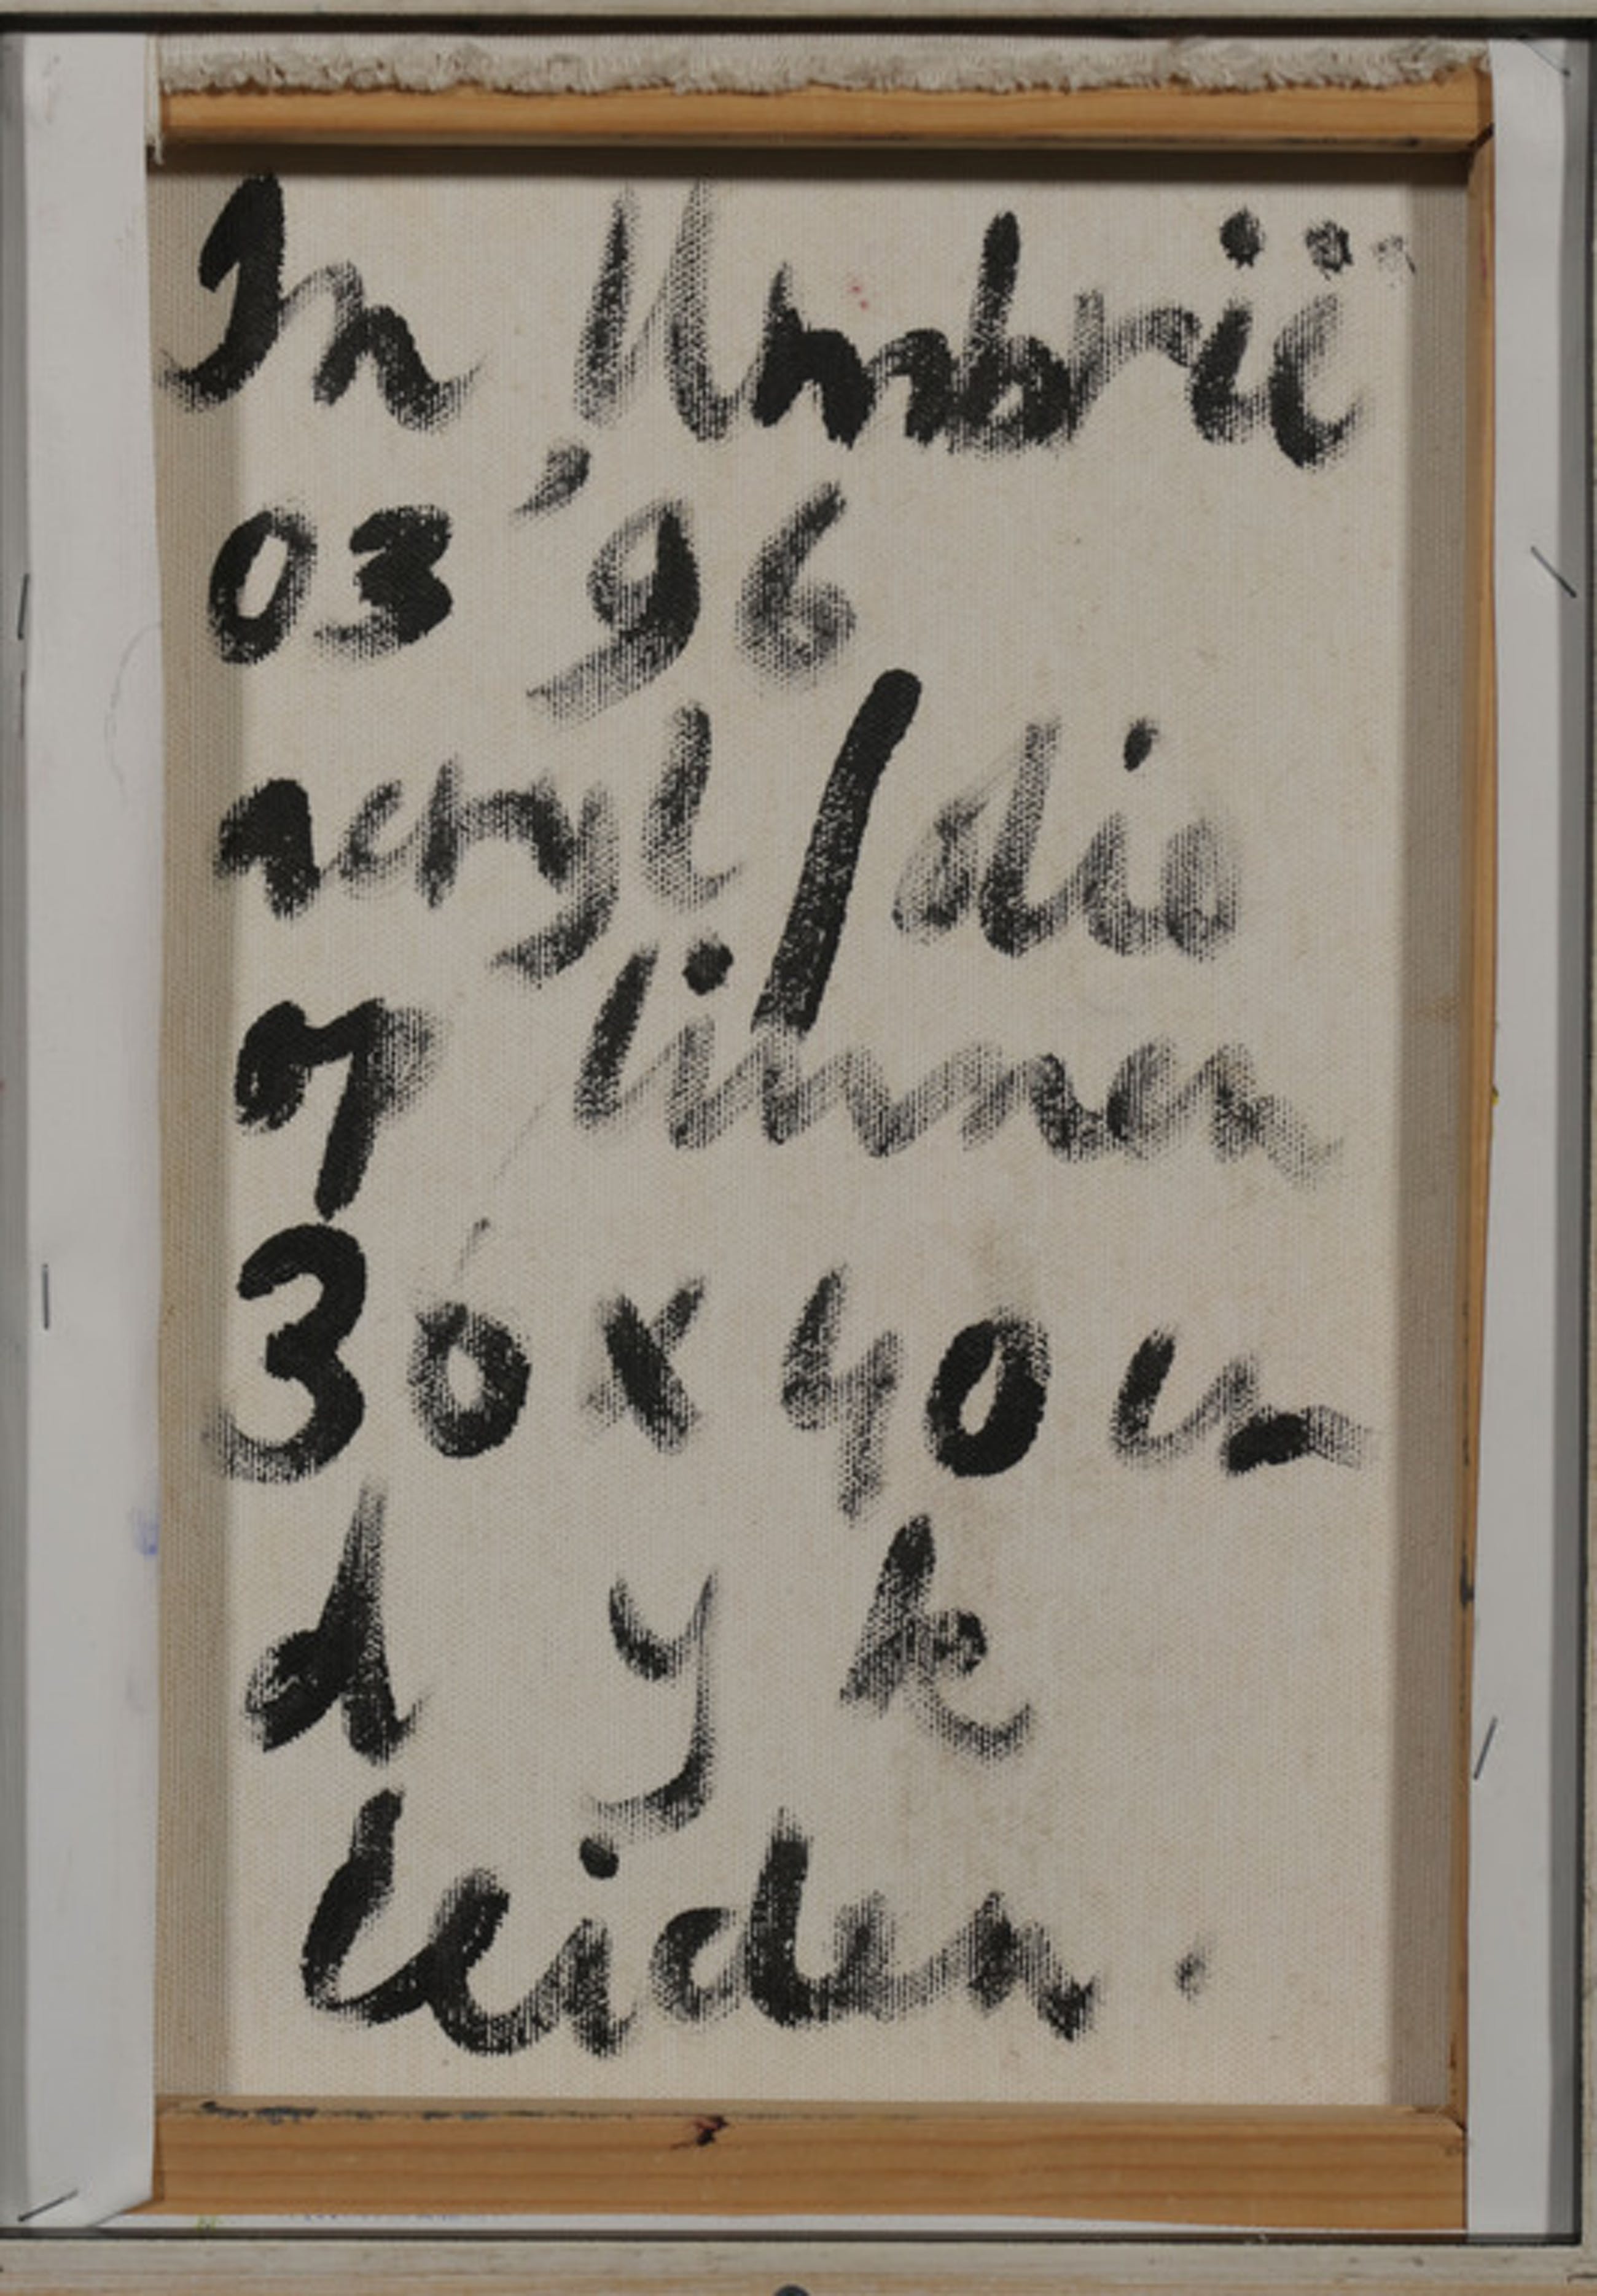 In Umbrië
03 '96
acryl / olie
op linnen
30 x 40 cm
d y k
leiden.